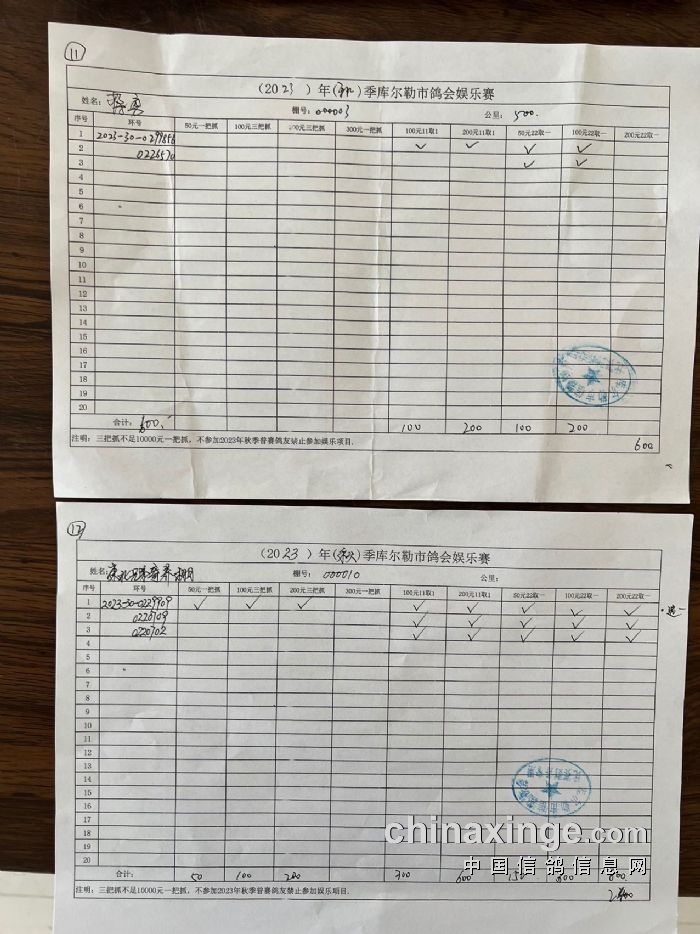 11
(2023)年(秋)季库尔勒市鸽会娱乐赛
姓名: 棚号:000003 公里:500.
序号 环号 50元一把抓 100元三把抓 200元三把抓 300元一把抓 100元11取1 200元11取1 50元22取一 100元22取一 200元22取一
1 2023-30-0299856
2 0226570 ✓ ✓ ✓ ✓
3 ✓ ✓
4
5
6
7
8
9
10
11
12
13
14
15
16
17
18
19
20
合计: 600.- 100 200 100 200
注明: 三把抓不足10000元一把抓, 不参加2023年秋季普赛鸽友禁止参加娱乐项目. 600
12
(2023)年(秋)季库尔勒市鸽会娱乐赛
姓名: 棚号: 000010 公里:
序号 环号 50元一把抓 100元三把抓 200元三把抓 300元一把抓 100元11取1 200元11取1 50元22取一 100元22取一 200元22取一
1 2023-30-0229909 ✓ ✓ ✓ ✓ ✓ ✓ ✓ ✓
2 0220709 ✓ ✓ ✓ ✓ ✓
3 0220702 ✓ ✓ ✓ ✓ ✓
4
5
6
7
8
9
10
11
12
13
14
15
16
17
18
19
20
合计: 50 100 200 300 600 150 300 600
注明: 三把抓不足10000元一把抓, 不参加2023年秋季普赛鸽友禁止参加娱乐项目.
chinaxinge.com
中国信鸽信息网